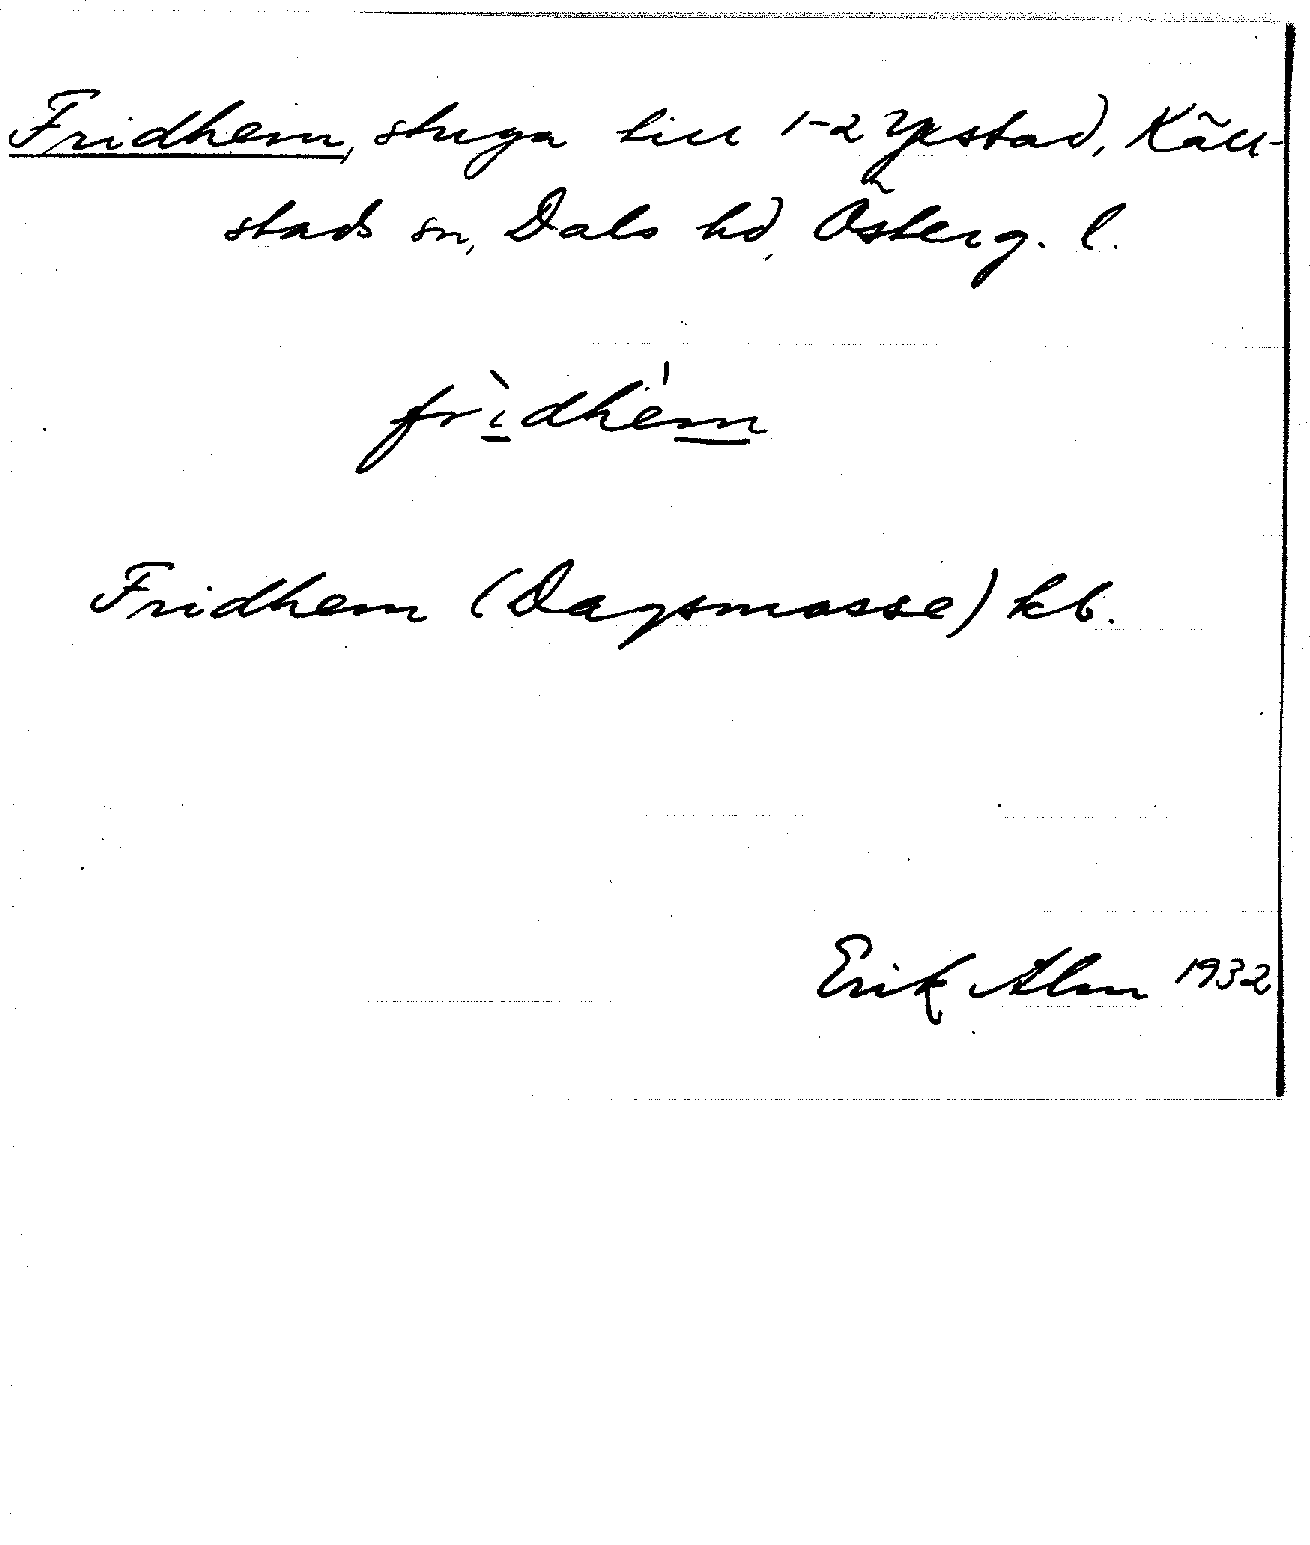 Fridhem, stuga till 1-2 Ystad, Käll-
stads sn, Dals hd, Österg. l.
frìdhém
Fridhem (Dagsmosse) kb.
Erik Alm 1932